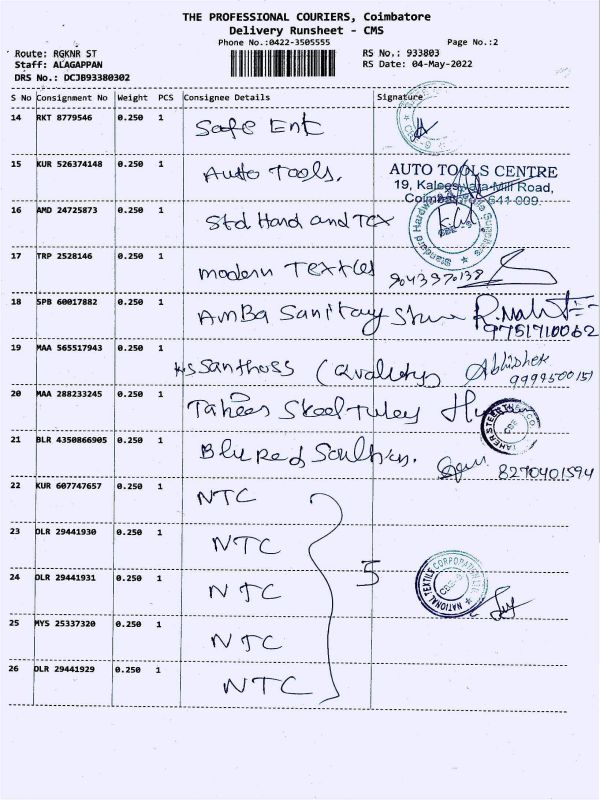 THE PROFESSIONAL COURIERS, Coimbatore
Delivery Runsheet - CMS
Phone No.:0422-3505555 Page No.:2
Route: RGKNR ST RS No.: 933803
Staff: ALAGAPPAN RS Date: 04-May-2022
DRS No.: DCJB93380302
S No Consignment No Weight PCS Consignee Details Signature
14 RKT 8779546 0.250 1 Safe Ent
15 KUR 526374148 0.250 1 Auto Tools.
AUTO TOOLS CENTRE
19, Kaleeswara Mill Road,
Coimbatore 641 009.
16 AMD 24725873 0.250 1 Std Hand and Tex
Standard Hardware
17 TRP 2528146 0.250 1 modern Textles
18 SPB 60017882 0.250 1 AmBa Sanitary
9751710062
19 MAA 565517943 0.250 1 Abhishek
9999500151
20 MAA 288233245 0.250 1
TAHER STEEL CO. CBE
21 BLR 4350866905 0.250 1 Blu Red
8270401594
22 KUR 607747657 0.250 1 NTC
23 DLR 29441930 0.250 1 NTC
24 DLR 29441931 0.250 1 NTC 5
NATIONAL TEXTILE CORPORATION LTD. CBE-9
25 MYS 25337320 0.250 1 NTC
26 DLR 29441929 0.250 1 NTC